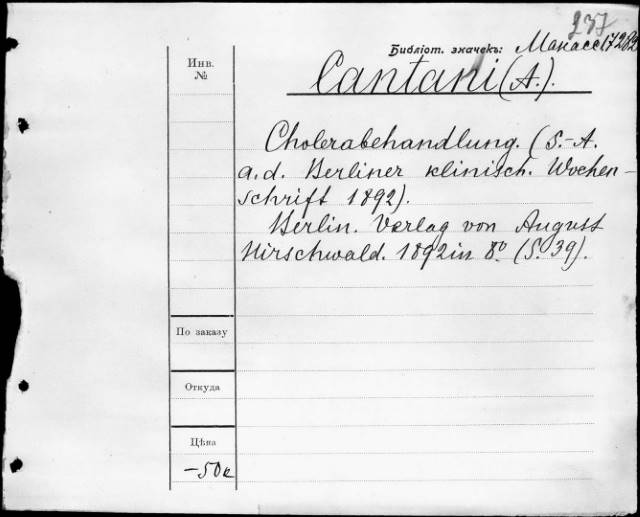 237
Библіот. значекъ: Манасс 17282
Инв.
№
Cantani (A.).
Cholerabehandlung. (S.-A.
a.d. Berliner klinisch. Wochen-
schrift 1892).
Berlin. Verlag von August
Hirschwald. 1892 in 8º. (S. 39).
По заказу
Откуда
Цѣна
-50к